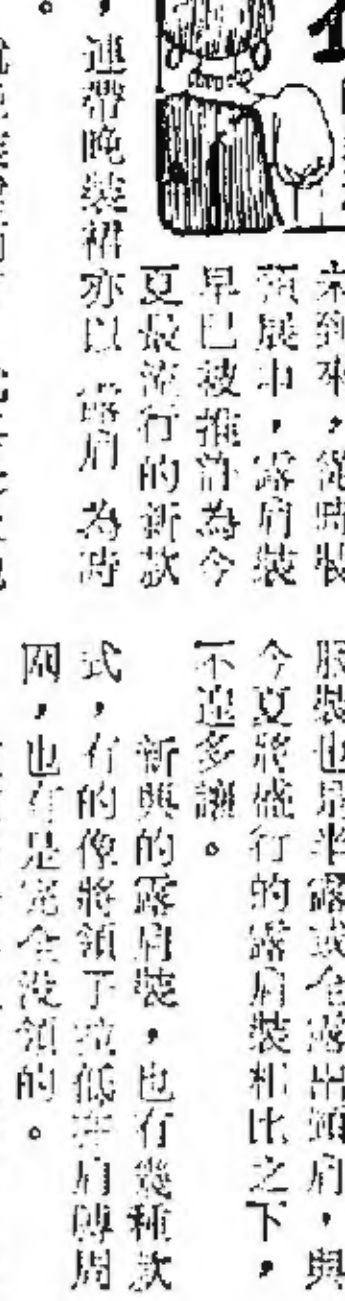 未到來，從時裝
預展中，露肩裝
早已被推許為今
夏最流行的新款
，連帶晚裝裙亦以「露肩」為時
。
服裝也是半露或全露出頸肩，與
今夏將盛行的露肩裝相比之下，
不遑多讓。
新興的露肩裝，也有幾種款
式，有的像將領子拉低在肩膊周
圍，也有是完全沒領的。